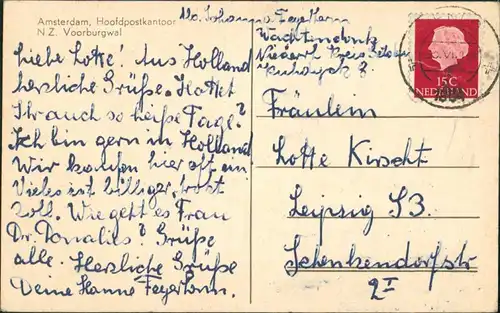 Amsterdam, Hoofdpostkantoor
N.Z. Voorburgwal
Johanna Feyerlamm
Wachtendonk
Niederrh Kreis Geldern
Liebe Lotte! Aus Holland
herzliche Grüße. Hattet
Ihr auch so heiße Tage?
Ich bin gern in Holland
Wir kaufen hier oft ein
Vieles ist billiger, trotz
Zoll. Wie geht es Frau
Dr. Donalies? Grüße
alle. Herzliche Grüße
Deine Hanne Feyerlamm.
15C
NEDERLAND
Fräulein
Lotte Kirscht
Leipzig S3
Schenkendorfstr
2 I